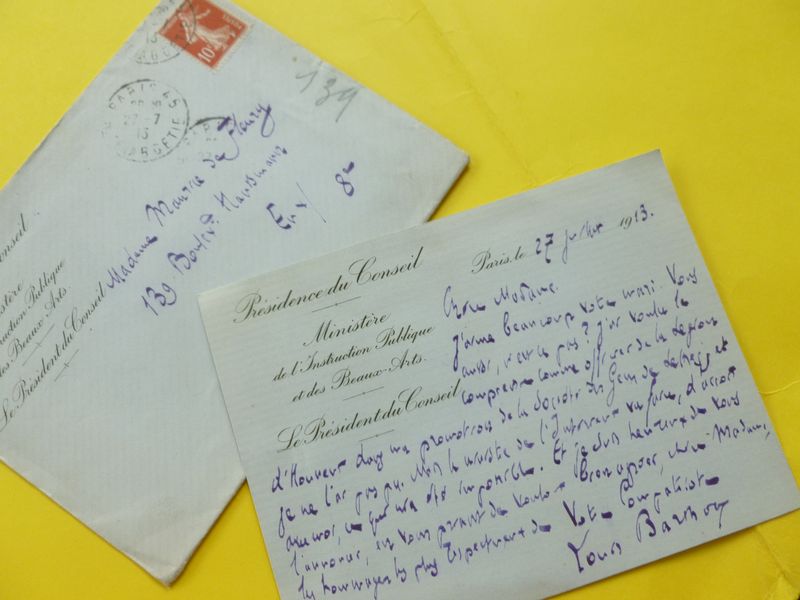 10c
PARIS 45
27-7
13
R. LARGETIE
139
Madame Maurice de Fleury
139 Boulevd Haussmann
E.V/ 8e
Conseil
Ministère
Instruction Publique
des Beaux-Arts.
Le Président du Conseil
Présidence du Conseil
Ministère
de l'Instruction Publique
et des Beaux-Arts.
Le Président du Conseil
Paris, le 27 juillet 1913.
Chère Madame.
J'aime beaucoup votre mari. Vous
aussi, n'est ce pas? J'ai voulu le
comprendre comme officier de la Légion
d'Honneur dans ma promotion de la Société des Gens de Lettres et
je ne l'ai pas pu. Mais le ministre de l'Intérieur va faire, d'accord
avec moi, ce qui m'a été impossible. Et je suis heureux de vous
l'annoncer, en vous priant de vouloir bien agréer, chère Madame,
les hommages les plus respectueux de votre compatriote
Louis Barthou